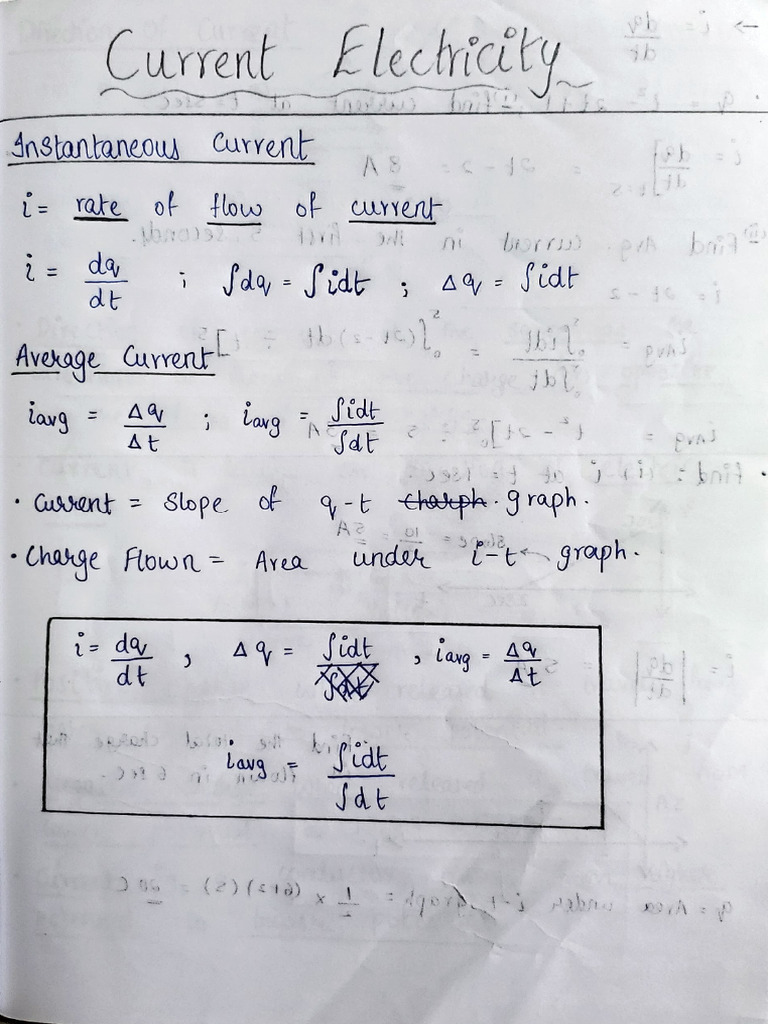 Current Electricity
Instantaneous Current
i = rate of flow of current
i = dq/dt ; ∫dq = ∫idt ; Δq = ∫idt
Average Current
iavg = Δq/Δt ; iavg = ∫idt/∫dt
· Current = Slope of q-t charph · graph.
· Charge Flown = Area under i-t graph.
i = dq/dt , Δq = ∫idt , iavg = Δq/Δt
iavg = ∫idt/∫dt